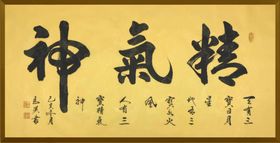 精氣神
天有三
寶日月
星
地有三
寶水火
風
人有三
寶精氣
神
己亥冬月
書